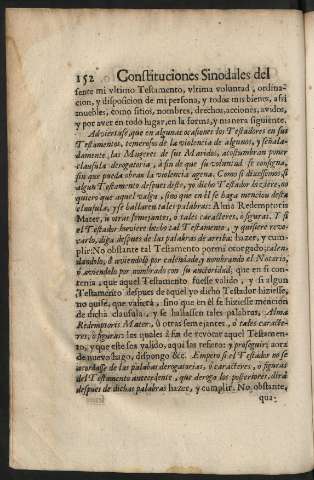 152 Constituciones Sinodales del
sente mi vltimo Testamento, vltima voluntad, ordina-
cion, y disposicion de mi persona, y todos mis bienes, assi
muebles, como sitios, nombres, drechos, acciones, avidos,
y por aver en todo lugar, en la forma, y manera siguiente.
Adviertase que en algunas ocasiones los Testadores en sus
Testamentos, temerosos de la violencia de algunos, y señala-
damente, las Mugeres de sus Maridos, acostumbran poner
clausula derogatoria, à fin de que su voluntad se consiga,
sin que pueda obrar la violencia agena. Como si dixessemos si
algun Testamento despues deste, yo dicho Testador hiziere, no
quiero que aquel valga, sino que en èl se haga mencion desta
clausula, y se hallaren tales palabras: Alma Redemptoris
Mater, ù otras semejantes, ò tales caracteres, ò figuras. Y si
el Testador huviere hecho tal Testamento, y quisiere revo-
carlo, diga despues de las palabras de arriba: hazer, y cum-
plir: No obstante tal Testamento por mi otorgado; calen-
dandolo, ò aviendolo por calendado, y nombrando el Notario,
ò aviendolo por nombrado con su autoridad; que en si con-
tenia, que aquel Testamento fuesse valido, y si algun
Testamento despues de aquel yo dicho Testador hiziesse,
no quise, que valiera, sino que en èl se hiziesse mencion
de dicha clausula, y se hallassen tales palabras, Alma
Redemptoris Mater, ò otras semejantes, ò tales caracte-
res, ò figuras: los quales à fin de revocar aquel Testamen-
to, y que este sea valido, aqui las refiero, y proseguir: aora
de nuevo hago, dispongo &c. Empero si el Testador no se
acordasse de las palabras derogatorias, ò caracteres, ò figuras
del Testamento antecedente, que derogo los posteriores, dirà
despues de dichas palabras hazer, y cumplir. No, obstante,
que